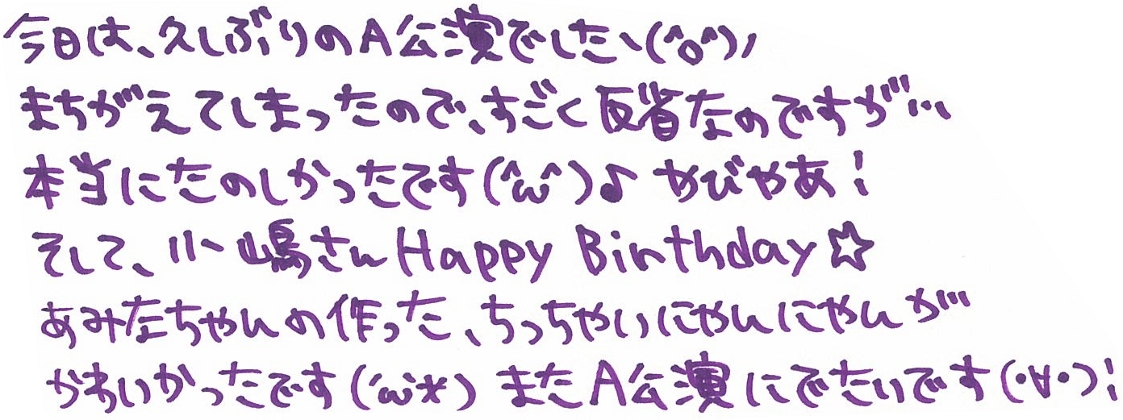 今日は、久しぶりのA公演でした、(^o^)ノ
まちがえてしまったので、すごく反省なのですが…
本当にたのしかったです(^ω^)♪ やびやあ!
そして、小嶋さんHappy Birthday☆
あみたちゃんの作った、ちっちゃいにゃんにゃんが
かわいかったです(^ω^*) またA公演にでたいです(・∀・)!